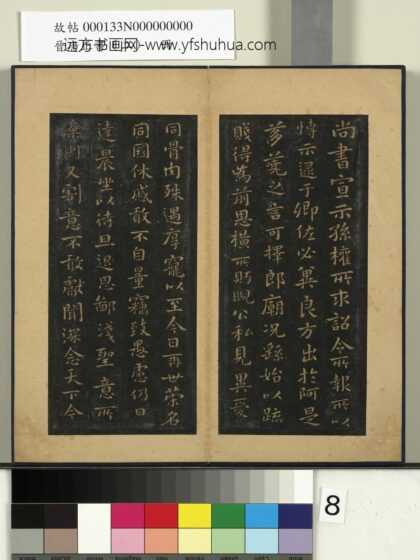 故帖 000133N000000000
远方书画网-www.yfshuhua.com
尚書宣示孫權所求詔令所報所以
博示逮于卿佐必冀良方出於阿是
芻蕘之言可擇郎廟況繇始以疏
賤得為前恩橫所盼睨公私見異愛
同骨肉殊遇厚寵以至今日再世榮名
同國休慼敢不自量竊致愚慮仍日
達晨坐以待旦退思鄙淺聖意所
棄則又割意不敢獻聞深念天下今
8